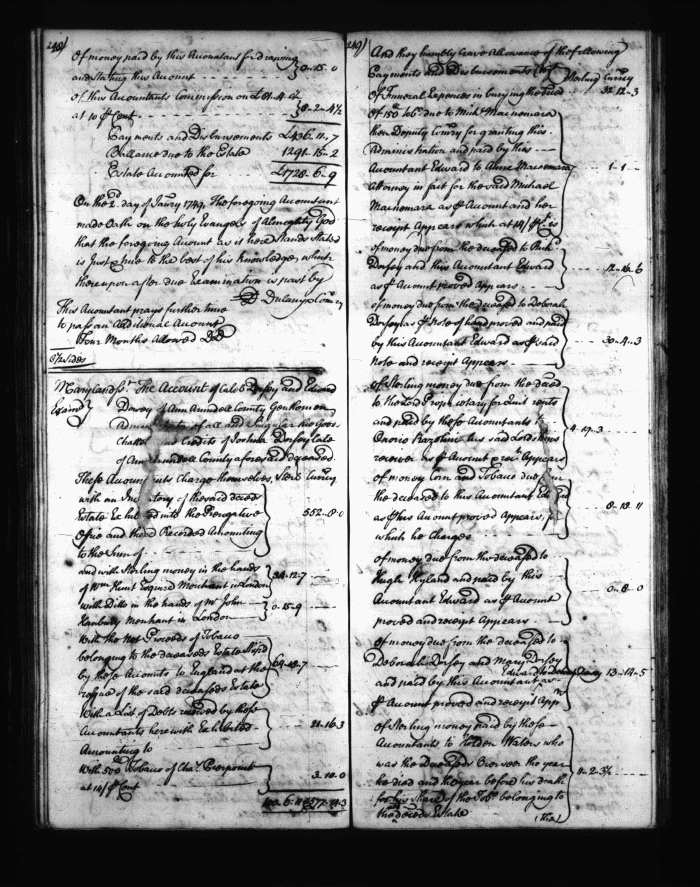 248)
Of money paid by this Accountant for drawing
and stating this Account - - - } 0..15..0
of this Accountants Commission on £81..4.
at 10 ℔ Cent } 8..2..4½
Payments and Disbursements £436..11..7
Ballance due to the Estate 1291..15..2
Estate Accounted for £1728..6..9
On the 2.d day of Janry 1749, The foregoing Accountant
made Oath on the Holy Evangels of Almighty God
that the foregoing Account as it here stands Stated
is Just & true to the best of his Knowledge, which
thereupon after due Examination is past by
D Dulany Comry
This Accountant prays further time
to pass an Additional Account
Four Months Allowed DD
Sides
Maryland ss.t The Account of Caleb Dorsey and Edward
Examd Dorsey of Ann Arundell County Gentlemen
Admin of all and Singular the Goods
Chattels and Credits of Joshua Dorsey late
of Ann Arundell County aforesaid deceased
These Accountants Charge themselves, Sterl Currcy
with an Inventory of the said deceds
Estate Exhibited into the Prerogative
Office and there Recorded Amounting
to the Sum of - - 552..8..0
and with Sterling money in the hands
of Wm Hunt Esqr Merchant in London } 34..12..7
with Ditto in the hands of Mr John
Hanbury Merchant in London } 0..15..9
With the Net Proceeds of Tobacco
belonging to the deceaseds Estate Ship'd
by these Accomts to England at the
risque of the said deceaseds Estate
With a List of Debts received by these
Accountants herewith Exhibited
Amounting to 21..16.3
With 500 lb Tobacco of Chas Pierpoint
at 14/ ℔ Cent 3..10..0
249)
And they humbly Crave Allowance of the following
Payments and Disbursements (viz) Sterling Currcy
Of Funeral Expences in burying the deced 32..12..3
Of 150 lb Tobo due to Michl Macnemara
then Deputy Comry for granting this
Administration and paid by this
Accountant Edward to Anne Macnemara
Attorney in fact for the said Michael
Macnemara as ℔ Account and her
receipt Appears which at 14/ ℔ Ct is 1..1..
of money due from the deceased to
Dorsey and this Accountant Edward
as ℔ Account proved Appears
of money due from the deceased to Deborah
Dorsey as ℔ Note of hand proved and paid
by this Accountant Edward as ℔ said
Note and receipt Appears - 30..4..3
Of Sterling money due from the deced
to the Lord Proprietary for Quit rents
and paid by these Accountants
Onorio Razolini his said Lordships
receiver as ℔ Account prov'd Appears 4..17..3
of money Corn and Tobacco due from
the deceased to this Accountant Edward
as ℔ his Account proved Appears,
which he Charges 8..12..11
of money due from the deceased to
Hugh Ryland and paid by this
Accountant Edward as ℔ Account
proved and receipt Appears 0..8..0
of money due from the deceased to
Deborah Dorsey and Mary Dorsey
and paid by this Accountant Edward to Deborah Dorsey as
℔ Account proved and receipt App 13..14..5
of Sterling money paid by these
Accountants to Holden Waters who
was the Deceaseds Overseer the year
he died and the year before his death
for his share of the Tobo belonging to
the deceds Estate 11..2..3½
(the)